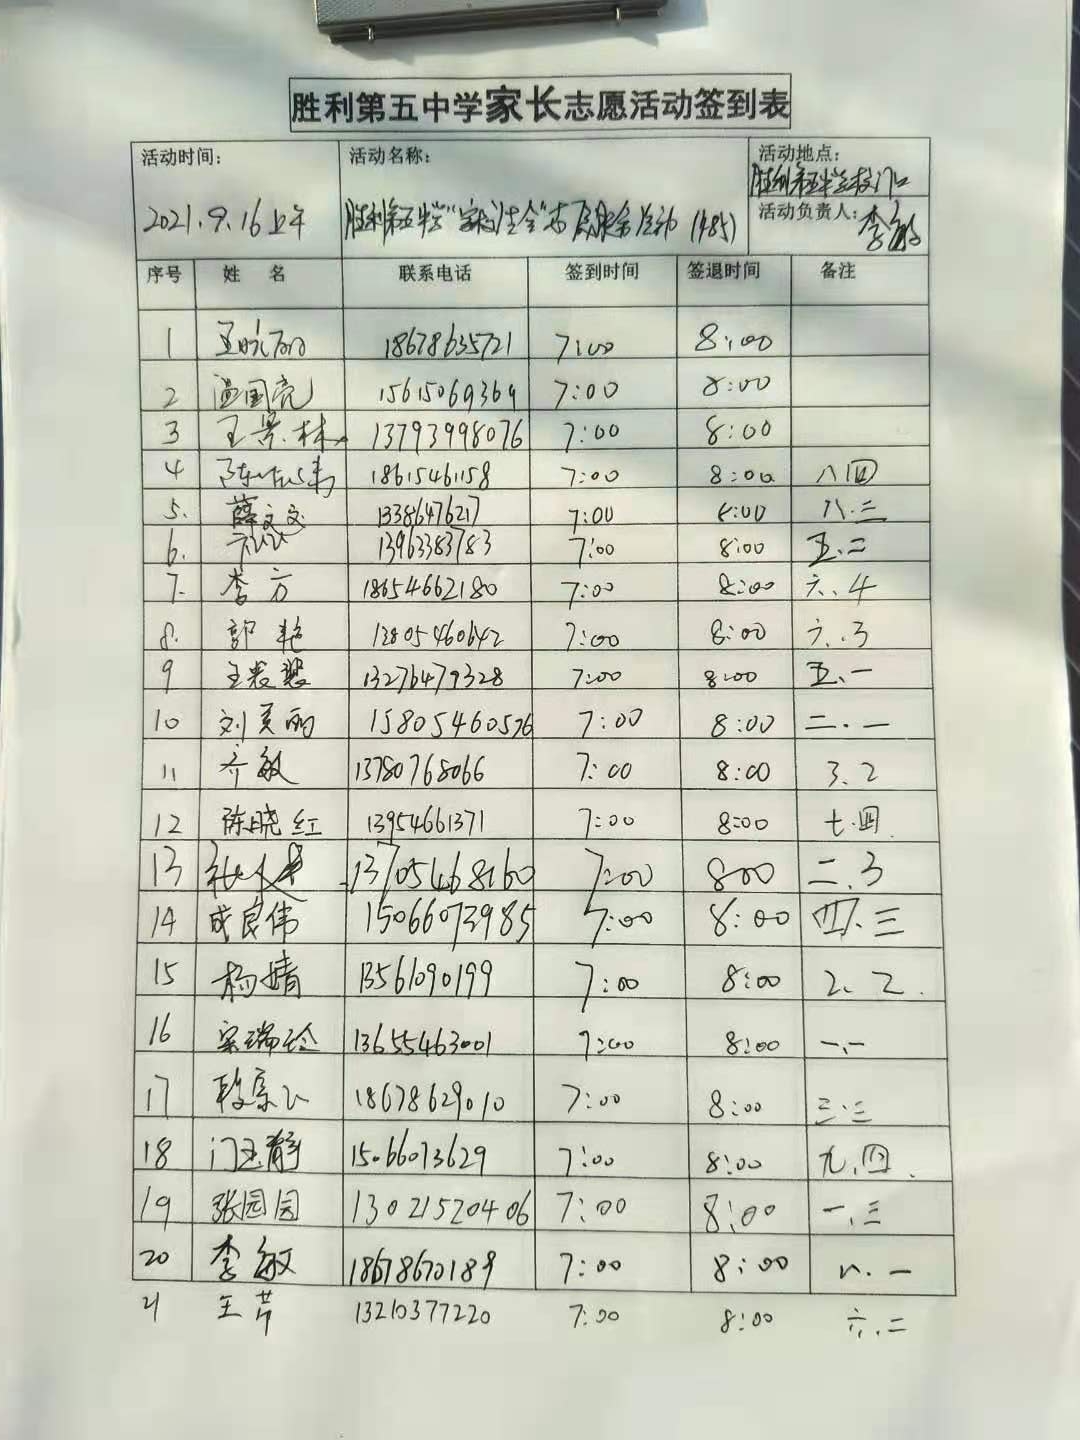 胜利第五中学家长志愿活动签到表
活动时间: 活动名称: 活动地点:
胜利第五中学校门口
2021.9.16上午 胜利第五中学"家校社会"志愿服务活动 (1485) 活动负责人: 李敏
序号 姓名 联系电话 签到时间 签退时间 备注
1 18678635721 7:00 8:00
2 温国亮 15615069364 7:00 8:00
3 王景林 13793998076 7:00 8:00
4 18615461158 7:00 8:00 八四
5. 薛文文 13386476217 7:00 8:00 八.三
6. 13963383783 7:00 8:00 五.二
7. 李方 18654662180 7:00 8:00 六.4
8. 郭艳 13805460642 7:00 8:00 六.3
9 13276479328 7:00 8:00 五.一
10 刘美丽 15805460576 7:00 8:00 二.一
11 齐敏 13780768066 7:00 8:00 3.2
12 陈晓红 13954661371 7:00 8:00 七.四
13 13705468160 7:00 800 二.3
14 成良伟 15066073985 7:00 8:00 四.三
15 杨婧 13561090199 7:00 8:00 2.2.
16 13655463001 7:00 8:00 一.一
17 18678629010 7:00 8:00 三.三
18 门玉静 15066073629 7:00 8:00 九.四.
19 张园园 13021520406 7:00 8:00 一.三
20 李敏 18678670189 7:00 8:00 八.一
21 王芹 13210377220 7:00 8:00 六.二